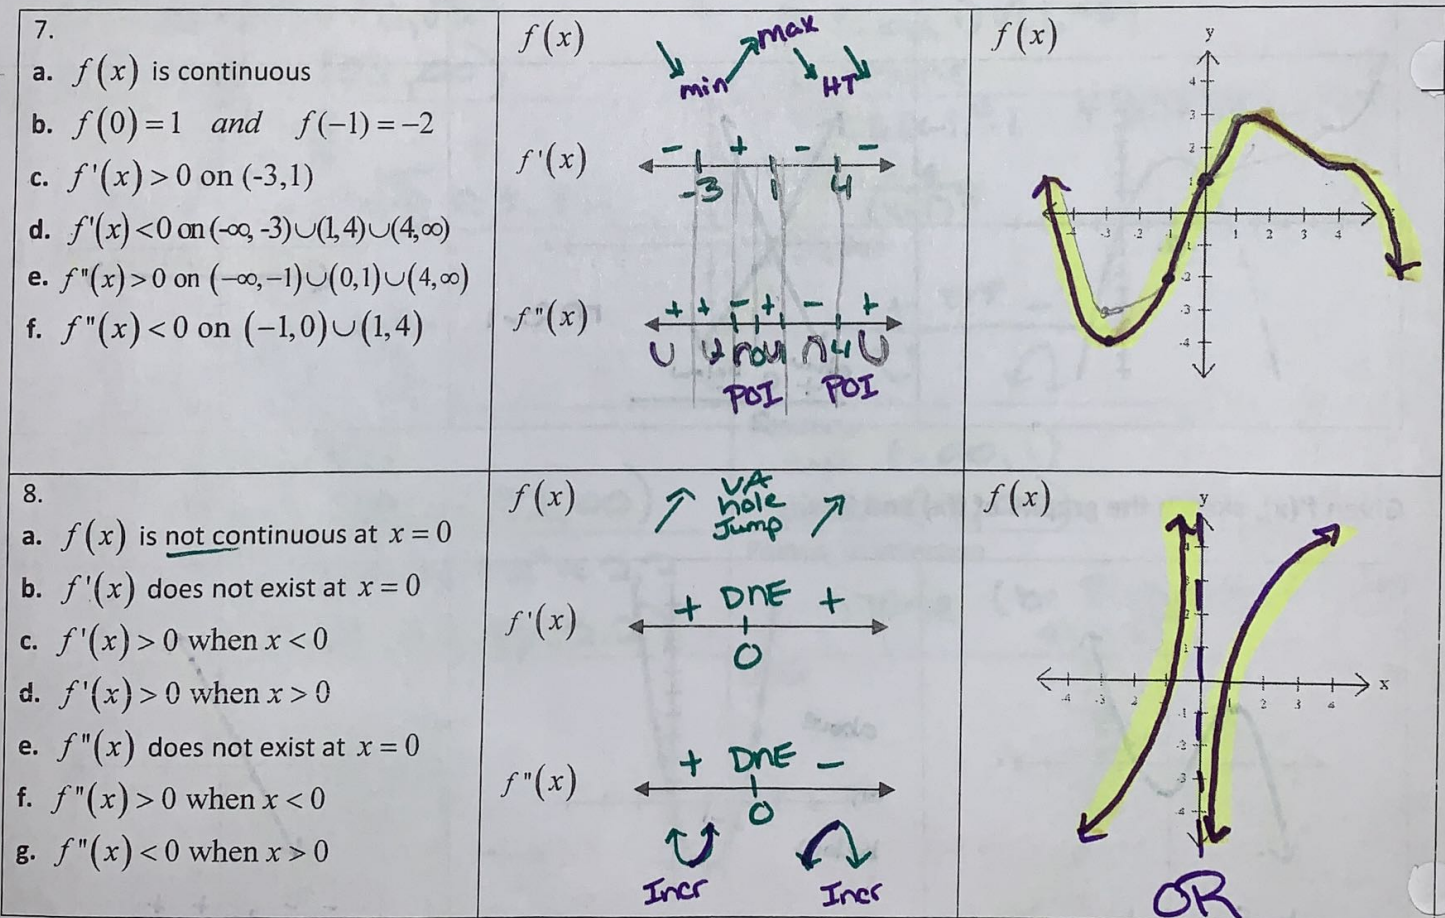 7.
a. f(x) is continuous
b. f(0) = 1 and f(-1) = -2
c. f'(x) > 0 on (-3,1)
d. f'(x) < 0 on (-∞, -3)∪(1,4)∪(4,∞)
e. f"(x) > 0 on (-∞,-1)∪(0,1)∪(4,∞)
f. f"(x) < 0 on (-1,0)∪(1,4)
f(x)
max
min HT
f'(x)
- + - -
-3 1 4
f"(x)
+ + - + - +
4
POI POI
f(x)
y
4
3
2
1
-3 -2 1 2 3 4
-1
-2
-3
-4
8.
a. f(x) is not continuous at x = 0
b. f'(x) does not exist at x = 0
c. f'(x) > 0 when x < 0
d. f'(x) > 0 when x > 0
e. f"(x) does not exist at x = 0
f. f"(x) > 0 when x < 0
g. f"(x) < 0 when x > 0
f(x)
VA
hole
Jump
f'(x)
+ DNE +
0
f"(x)
+ DNE -
0
Incr Incr
f(x)
y
x
4
3
2
1
-4 -3 2 1 2 3 4
-1
-2
-3
-4
OR